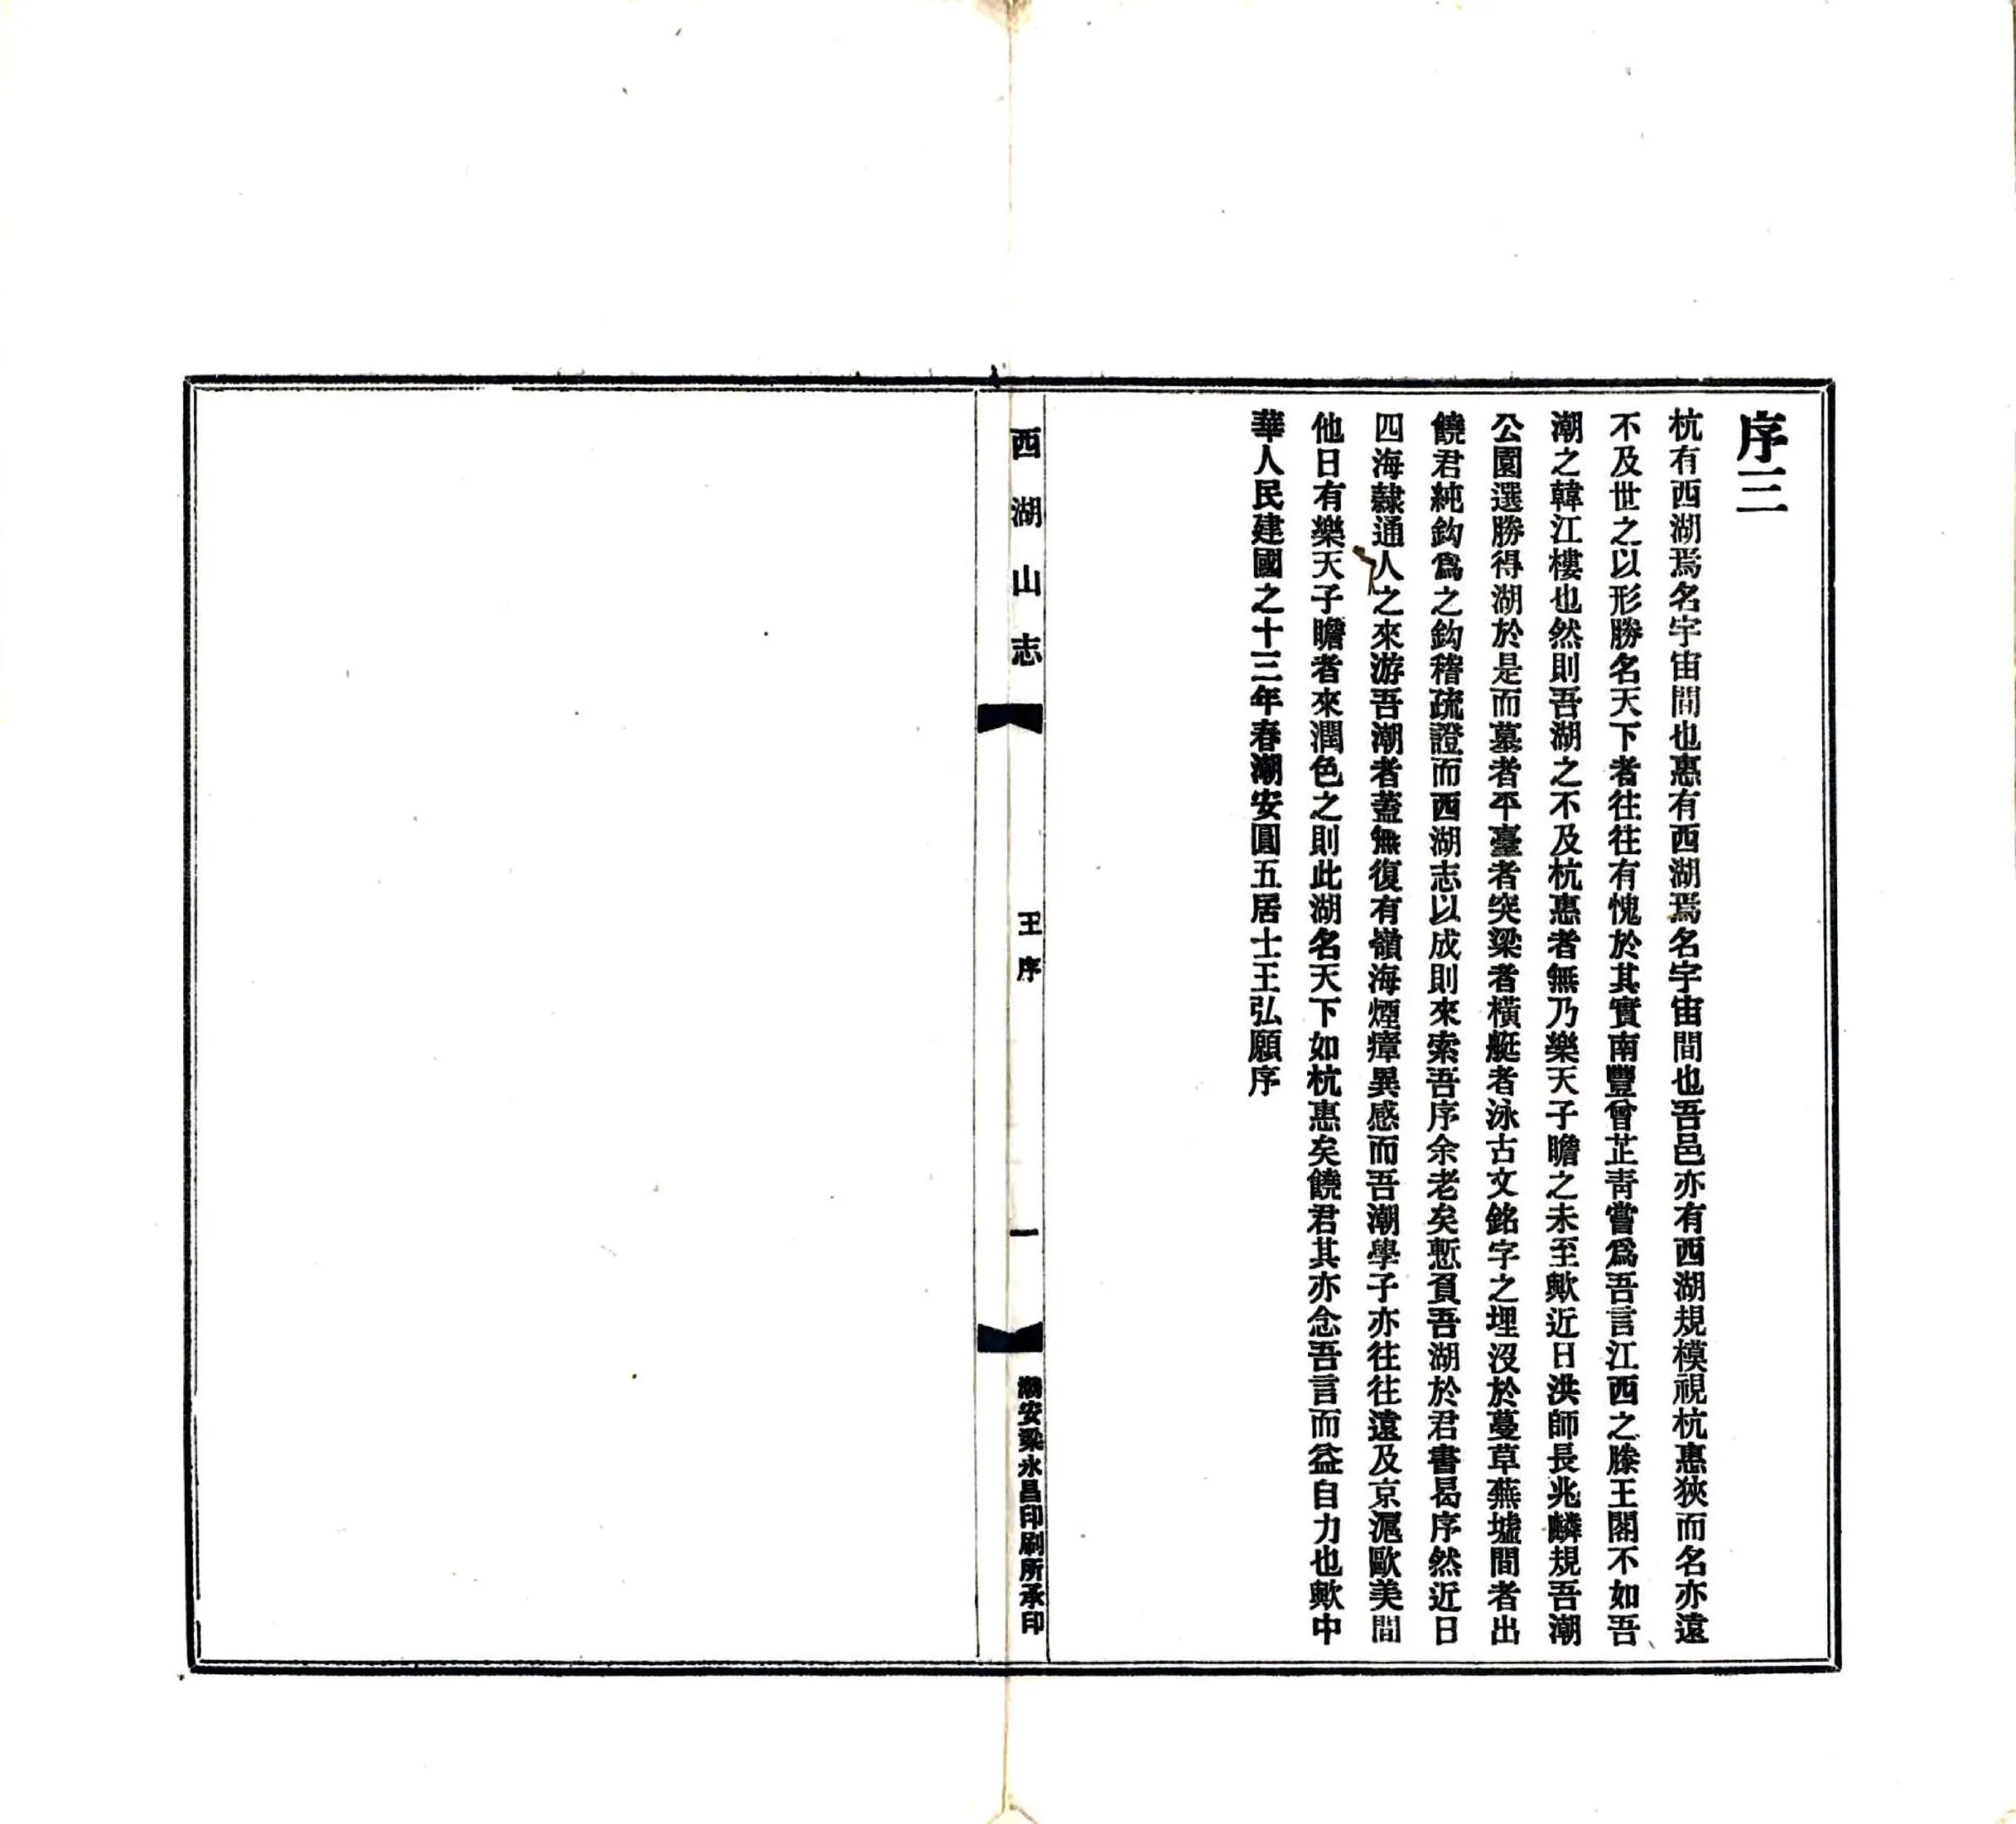 序三
杭有西湖焉名宇宙間也惠有西湖焉名宇宙間也吾邑亦有西湖規模視杭惠狹而名亦遠
不及世之以形勝名天下者往往有愧於其實南豐曾芷青嘗爲吾言江西之滕王閣不如吾
潮之韓江樓也然則吾湖之不及杭惠者無乃樂天子瞻之未至歟近日洪師長兆麟規吾潮
公園選勝得湖於是而墓者平臺者突梁者橫艇者泳古文銘字之埋沒於蔓草蕪墟間者出
饒君純鈎爲之鈎稽疏證而西湖志以成則來索吾序余老矣慙負吾湖於君書曷序然近日
四海隸通人之來游吾潮者蓋無復有嶺海煙瘴異感而吾潮學子亦往往遠及京滬歐美間
他日有樂天子瞻者來潤色之則此湖名天下如杭惠矣饒君其亦念吾言而益自力也歟中
華人民建國之十三年春潮安圓五居士王弘願序
西湖山志
王序
一
潮安梁永昌印刷所承印